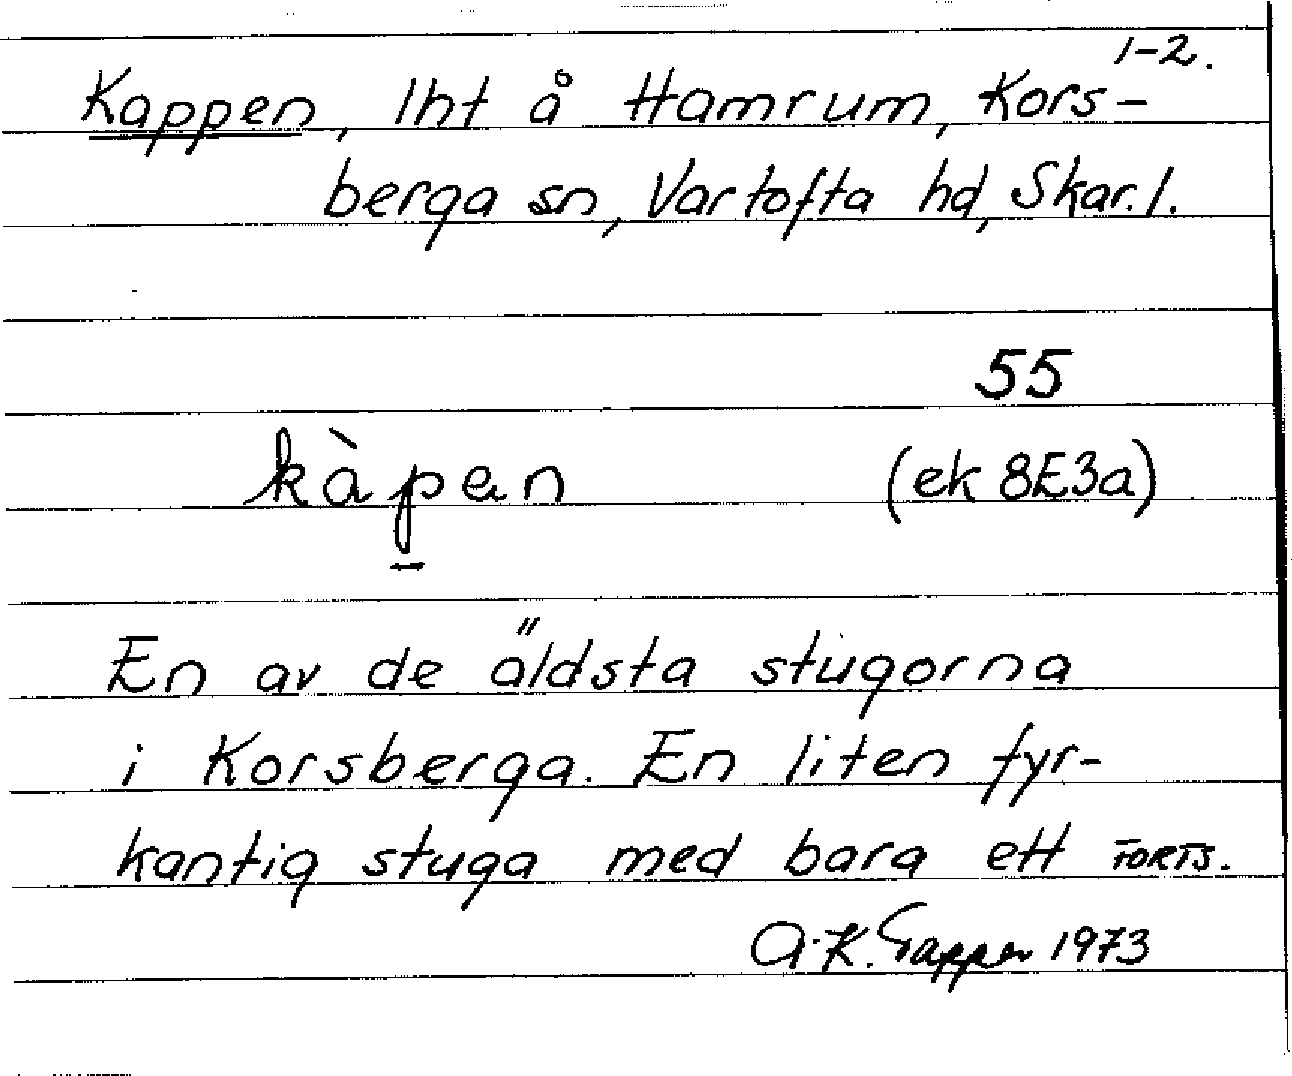 1-2.
Kappen, lht å Hamrum, Kors-
berga sn, Vartofta hd, Skar. l.
55
kàpen (ek 8E3a)
En av de äldsta stugorna
i Korsberga. En liten fyr-
kantig stuga med bara ett FORTS.
A-K. 1973